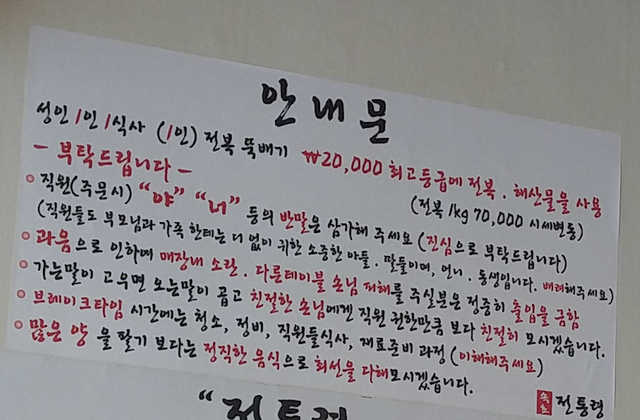 안내문
성인 1인 1식사 (1인) 전복 뚝배기 ₩20,000 최고등급에 전복. 해산물을 사용
(전복 1kg 70,000 시세변동)
- 부탁드립니다 -
직원(주문시) "야" "너" 등의 반말은 삼가해 주세요 (진심으로 부탁드립니다)
(직원들도 부모님과 가족 한테는 더 없이 귀한 소중한 아들. 딸들이며, 언니. 동생입니다. 배려해주세요)
과음으로 인하여 매장내 소란. 다른테이블 손님 피해를 주실분은 정중히 출입을 금함
가는말이 고우면 오는말이 곱고 친절한 손님에게 직원 권한만큼 보다 친절히 모시겠습니다.
브레이크타임 시간에는 청소, 정비, 직원들식사, 재료준비 과정 (이해해주세요)
많은 양 을 팔기 보다는 정직한 음식으로 최선을 다해모시겠습니다.
전통령
"전통령